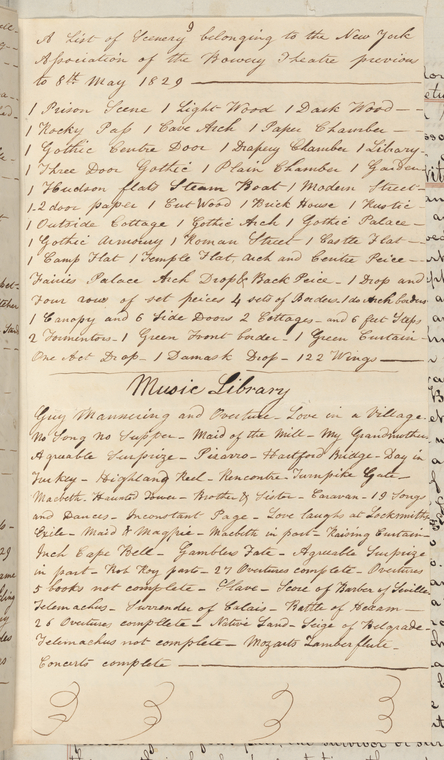 9
A List of Scenery belonging to the New York
Association of the Bowery Theatre previous
to 8th May 1829
1 Prison Scene 1 Light Wood 1 Dark Wood
1 Rocky Pass 1 Cave Arch 1 Paper Chamber
1 Gothic Centre Door 1 Drapery Chamber 1 Library
1 Three Door Gothic 1 Plain Chamber 1 Garden
1 Hudson flats Steam Boat 1 Modern Street
1.2 door paper 1 Cut Wood 1 Brick House 1 Rustic
1 Outside Cottage 1 Gothic Arch 1 Gothic Palace
1 Gothic Armoury 1 Roman Street 1 Castle Flat
1 Camp Flat 1 Temple Flat, Arch and Centre Peice
Fairies Palace Arch Drop & Back Peice. 1 Drop and
Four rows of set peices 4 sets of Borders. 1 do Arch borders
1 Canopy and 6 Side Doors 2 Cottages and 6 feet Steps
2 Tormentors 1 Green Front border 1 Green Curtain
One Act Drop 1 Damask Drop 122 Wings
Music Library
Guy Mannering and Overture Love in a Village.
No Song No Supper Maid of the Mill My Grandmother
Agreable Surprize Pizarro Hartford Bridge Day in
Turkey Highland Reel Rencontre Turnpike Gate
Macbeth Haunted Tower Brother & Sister Caravan 19 Songs
and Dances Inconstant Page Love laughs at Locksmiths
Exile Maid & Magpie Macbeth in part Raising Curtain
Inch Cape Bell Gamblers Fate Agreable Surprize
in part Rob Roy parts 27 Overtures complete Overtures
5 books not complete Slave Score of Barber of Seville
Telemachus Surrender of Calais Battle of Hexam
26 Overtures complete Native Land Seige of Belgrade
Telemachus not complete Mozarts Zamberflute
Concerts complete